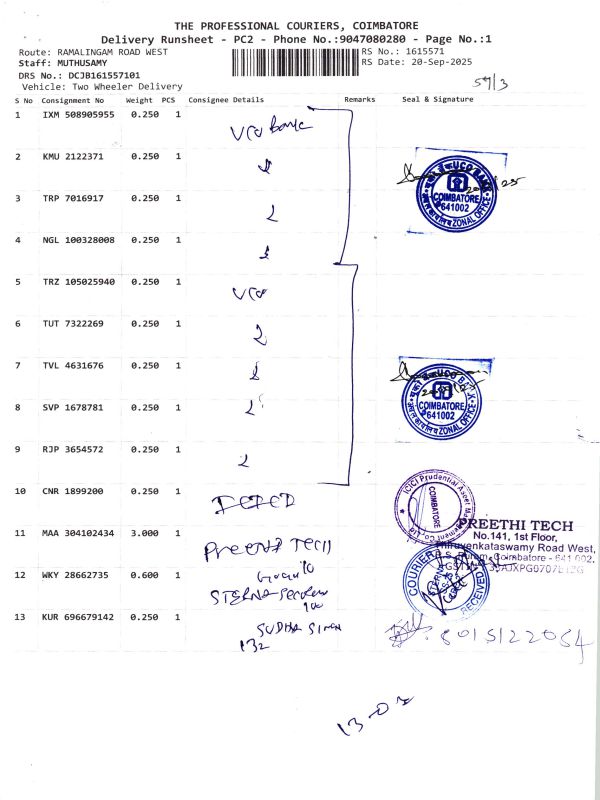 THE PROFESSIONAL COURIERS, COIMBATORE
Delivery Runsheet - PC2 - Phone No.:9047080280 - Page No.:1
Route: RAMALINGAM ROAD WEST
RS No.: 1615571
Staff: MUTHUSAMY
RS Date: 20-Sep-2025
DRS No.: DCJB161557101
Vehicle: Two Wheeler Delivery
57/3
S No Consignment No Weight PCS Consignee Details Remarks Seal & Signature
1 IXM 508905955 0.250 1
UCO Bank
2 KMU 2122371 0.250 1
UCO BANK
COIMBATORE
641002
ZONAL OFFICE
3 TRP 7016917 0.250 1
4 NGL 100328008 0.250 1
5 TRZ 105025940 0.250 1
UCO
6 TUT 7322269 0.250 1
7 TVL 4631676 0.250 1
UCO BANK
COIMBATORE
641002
ZONAL OFFICE
8 SVP 1678781 0.250 1
9 RJP 3654572 0.250 1
10 CNR 1899200 0.250 1
ICICI Prudential Asset Management Co Ltd
COIMBATORE
11 MAA 304102434 3.000 1
Preethi Tech
PREETHI TECH
No.141, 1st Floor,
Thiruvenkataswamy Road West,
Coimbatore - 641 002.
12 WKY 28662735 0.600 1
COURIER
RECEIVED
13 KUR 696679142 0.250 1
SUDHA SINGH
132
8015122054
13-02